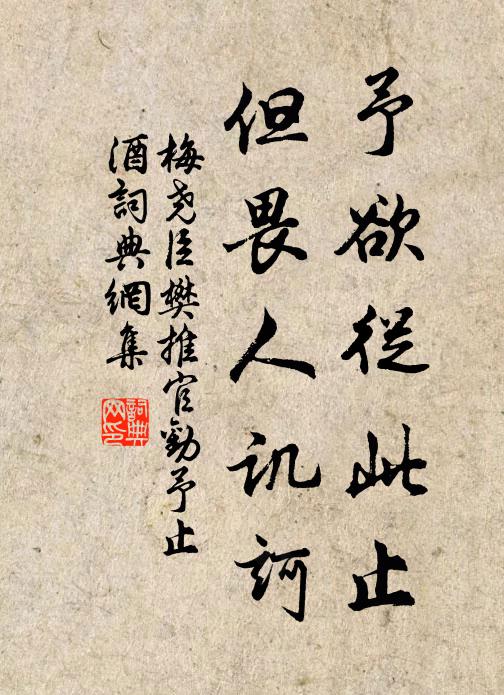 予欲從此止
但畏人讥訶
梅尧臣樊推官勸予止
酒詞典網集
詞典
网印